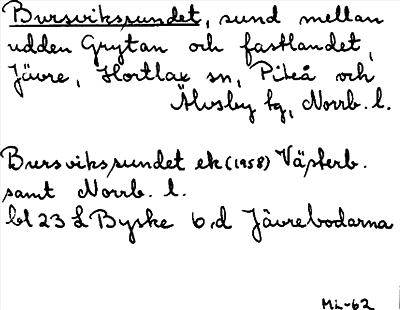 Bursvikssundet, sund mellan
udden Grytan och fastlandet,
Jävre, Hortlax sn, Piteå och
Älvsby tg, Norrb. l.
Bursvikssundet ek (1958) Västerb.
samt Norrb. l.
bl 23 L Byske 6,d Jävrebodarna
ML-62